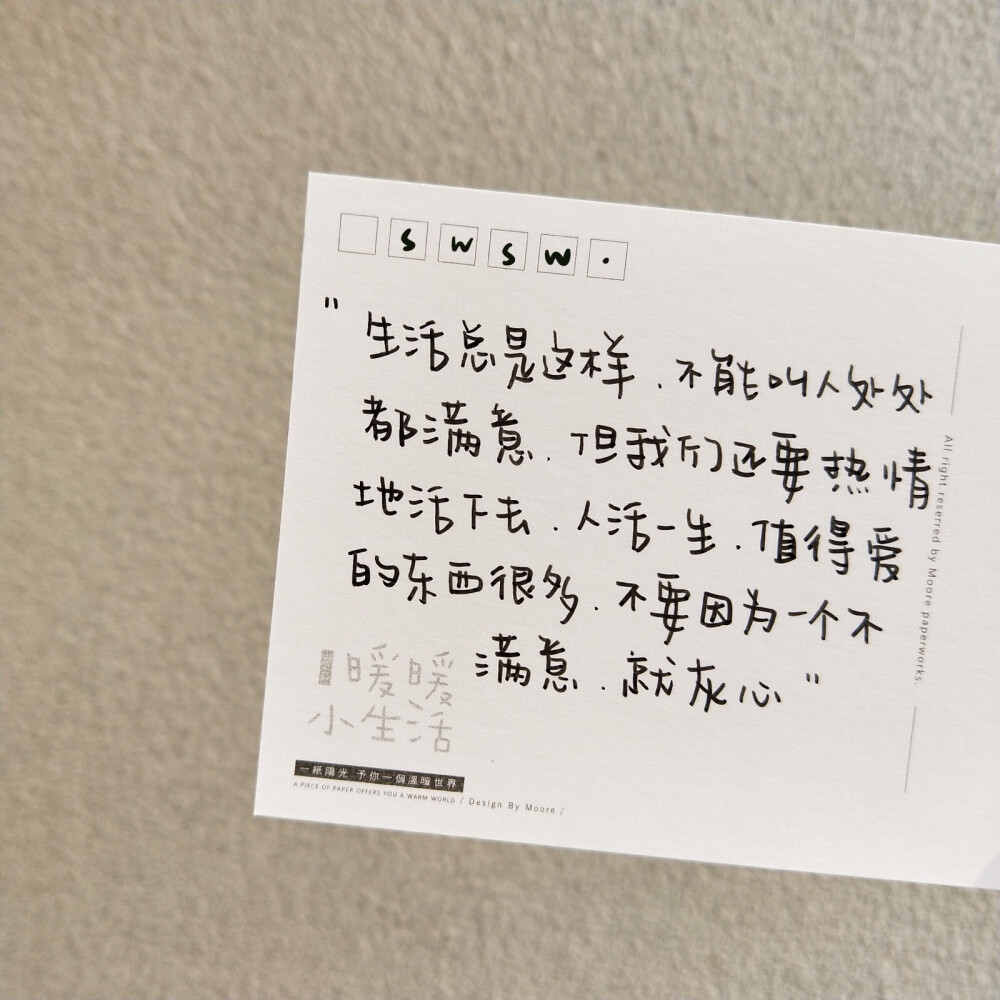 s w s w .
"生活总是这样.不能叫人处处
都满意.但我们还要热情
地活下去.人活一生.值得爱
的东西很多.不要因为一个不
满意.就灰心"
暖暖
小生活
一紙陽光 予你一個溫暖世界
A PIECE OF PAPER OFFERS YOU A WARM WORLD / Design By Moure /
All right reserred by Moore paperworks.